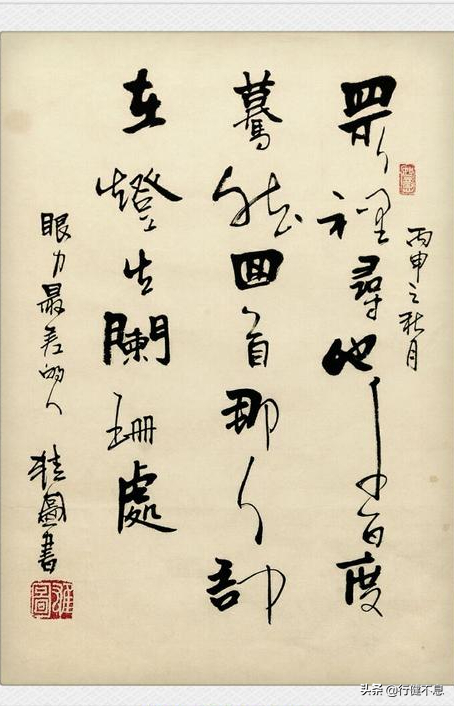 丙申之秋月
眾裡尋他千百度
驀然回首那人卻
在燈火闌珊處
眼力最差的人
圖書
头条 @行健不息